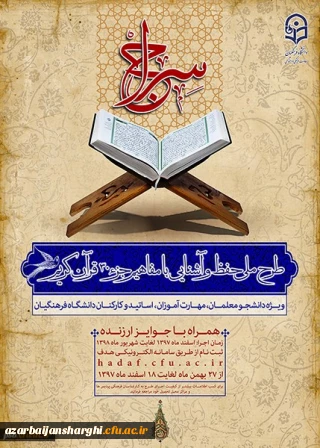 سراج
طرح ملی حفظ و آشنایی با مفاهیم جزء ۳۰ قرآن کریم
ویژه دانشجو معلمان، مهارت آموزان، اساتید و کارکنان دانشگاه فرهنگیان
همراه با جوایز ارزنده
زمان اجرا: اسفند ماه ۱۳۹۷ لغایت شهریور ماه ۱۳۹۸
ثبت نام از طریق سامانه الکترونیکی هدف
hadaf.cfu.ac.ir
از ۲۷ بهمن ماه لغایت ۱۸ اسفند ماه ۱۳۹۷
azarbaijansharghi.cfu.ac.ir